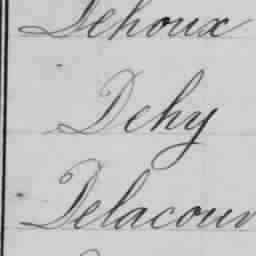 Dehoux
Dehy
Delacour